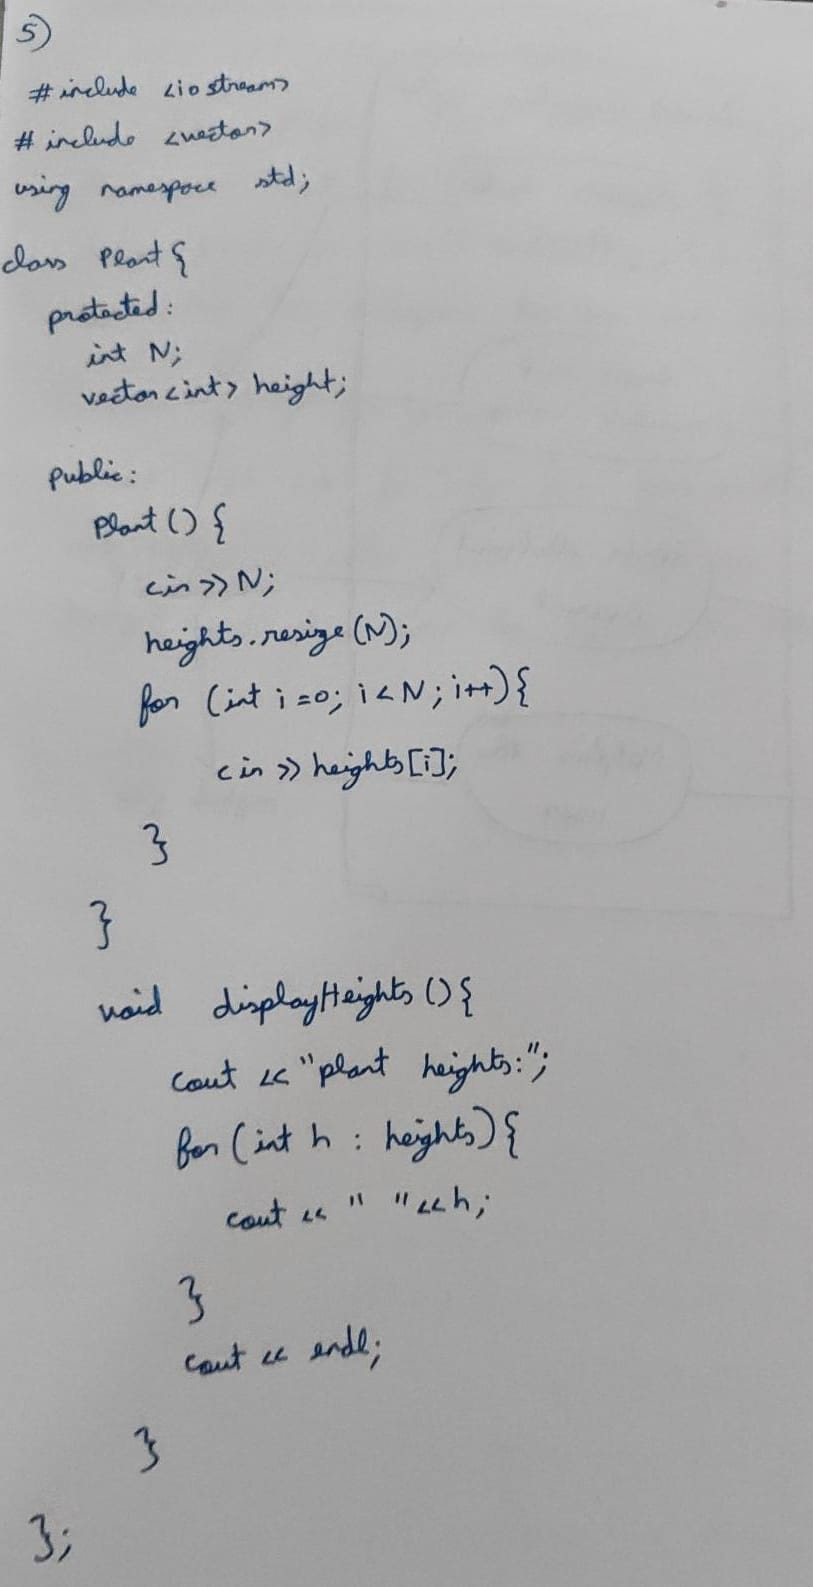 5)
#include <iostream>
#include <vector>
using namespace std;
class Plant {
protected:
int N;
vector<int> height;
public:
Plant() {
cin >> N;
heights.resize(N);
for (int i=0; i<N; i++){
cin >> heights[i];
}
}
void displayHeights() {
cout << "plant heights:";
for (int h : heights) {
cout << " " << h;
}
cout << endl;
}
};